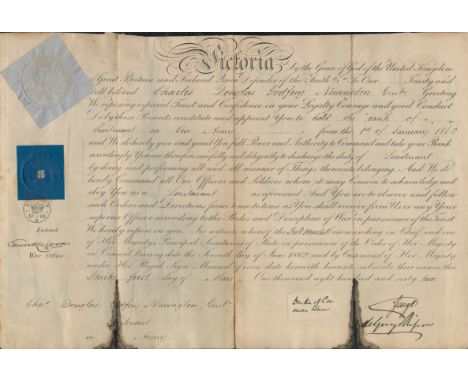 Victoria by the Grace of God of the United Kingdom
of Great Britain and Ireland Queen Defender of the Faith &c. To Our Trusty and
Well beloved Charles Douglas Godfrey Newington Gentn Greeting
We reposing especial Trust and Confidence in your Loyalty Courage and good Conduct
Do by these Presents constitute and appoint You to hold the rank of
Lieutenant in Our Army from the 1st of January 1862
and We do hereby give and grant You full Power and Authority to Command and take your Rank
accordingly You are therefore carefully and diligently to discharge the duty of Lieutenant
by doing and performing all and All manner of Things thereunto belonging And We do
hereby Command all Our Officers and Soldiers whom it may Concern to acknowledge and
obey You as a Lieutenant as aforesaid And You are to observe and follow
such Orders and Directions from time to time as You shall receive from Us or any Your
superior Officer according to the Rules and Discipline of War in pursuance of the Trust
We hereby repose in you In witness whereof the Commanding in Chief and one
of Her Majesty's Principal Secretaries of State in pursuance of the Order of Her Majesty
in Council bearing date the Seventh day of June 1862 and by Command of Her Majesty
under Her Royal Sign Manual of even date herewith hereunto subscribe their names this
Thirty first day of May One thousand eight hundred and sixty two
War Office
Chas Douglas Godfrey Newington Gentn
Lieutenant
in Army
George